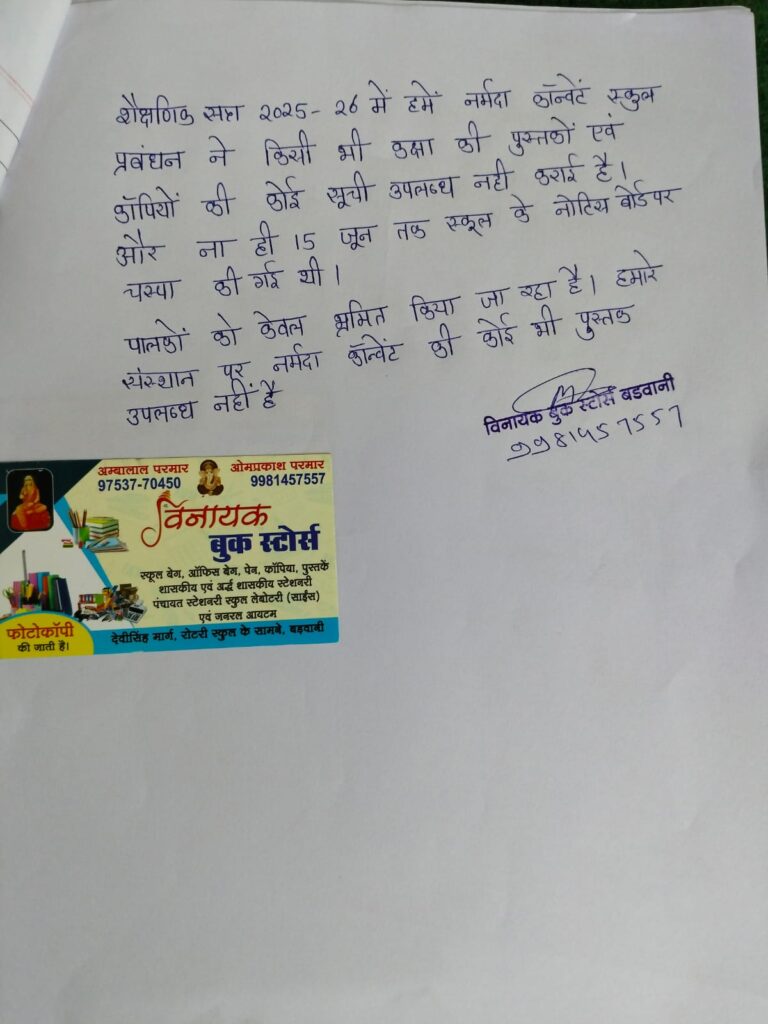 शैक्षणिक सत्र 2025-26 में हमें नर्मदा कॉन्वेंट स्कुल
प्रबंधन ने किसी भी कक्षा की पुस्तकों एवं
कॉपियों की कोई सूची उपलब्ध नही कराई है।
और ना ही 15 जून तक स्कूल के नोटिस बोर्ड पर
चस्पा की गई थी।
पालकों को केवल भ्रमित किया जा रहा है। हमारे
संस्थान पर नर्मदा कॉन्वेंट की कोई भी पुस्तक
उपलब्ध नहीं है
विनायक बुक स्टोर्स बडवानी
9981457557
अम्बालाल परमार
97537-70450
ओमप्रकाश परमार
9981457557
विनायक
बुक स्टोर्स
स्कूल बेग, ऑफिस बेग, पेन, कॉपिया, पुस्तकें
शासकीय एवं अर्द्ध शासकीय स्टेशनरी
पंचायत स्टेशनरी स्कुल लेबोटरी (साईंस)
एवं जनरल आयटम
फोटोकॉपी
की जाती है।
देवीसिंह मार्ग, रोटरी स्कुल के सामने, बड़वानी